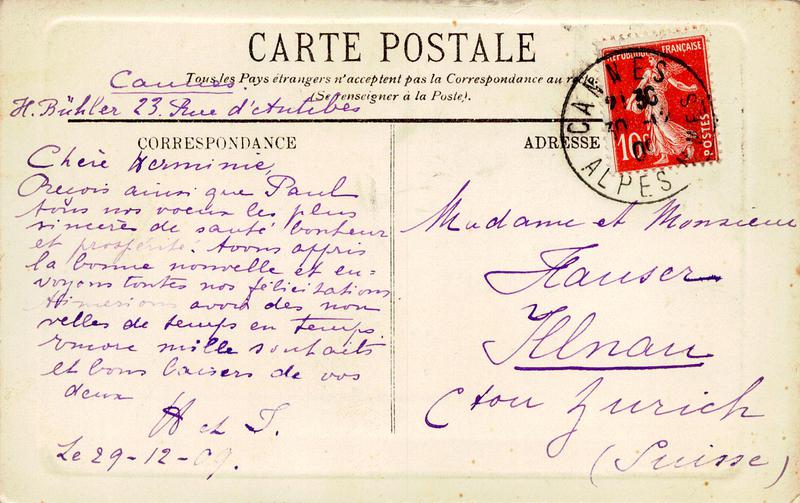 CARTE POSTALE
Tous les Pays étrangers n'acceptent pas la Correspondance au recto.
(Se renseigner à la Poste).
Cannes.
H. Bühler 23. Rue d'Antibes
CORRESPONDANCE
ADRESSE
REPUBLIQUE FRANÇAISE
10c
POSTES
CANNES
30
ALPES
Chère Hermine,
Reçois ainsi que Paul
tous nos voeux les plus
sincères de santé bonheur
et prospérité. Avons appris
la bonne nouvelle et en=
voyons toutes nos félicitations
Aimerions avoir des nou
velles de temps en temps
encore mille souhaits
et bons baisers de vos
deux
H et J.
Le 29-12-09.
Madame et Monsieur
Hauser
Illnau
Cton Zurich
(Suisse)